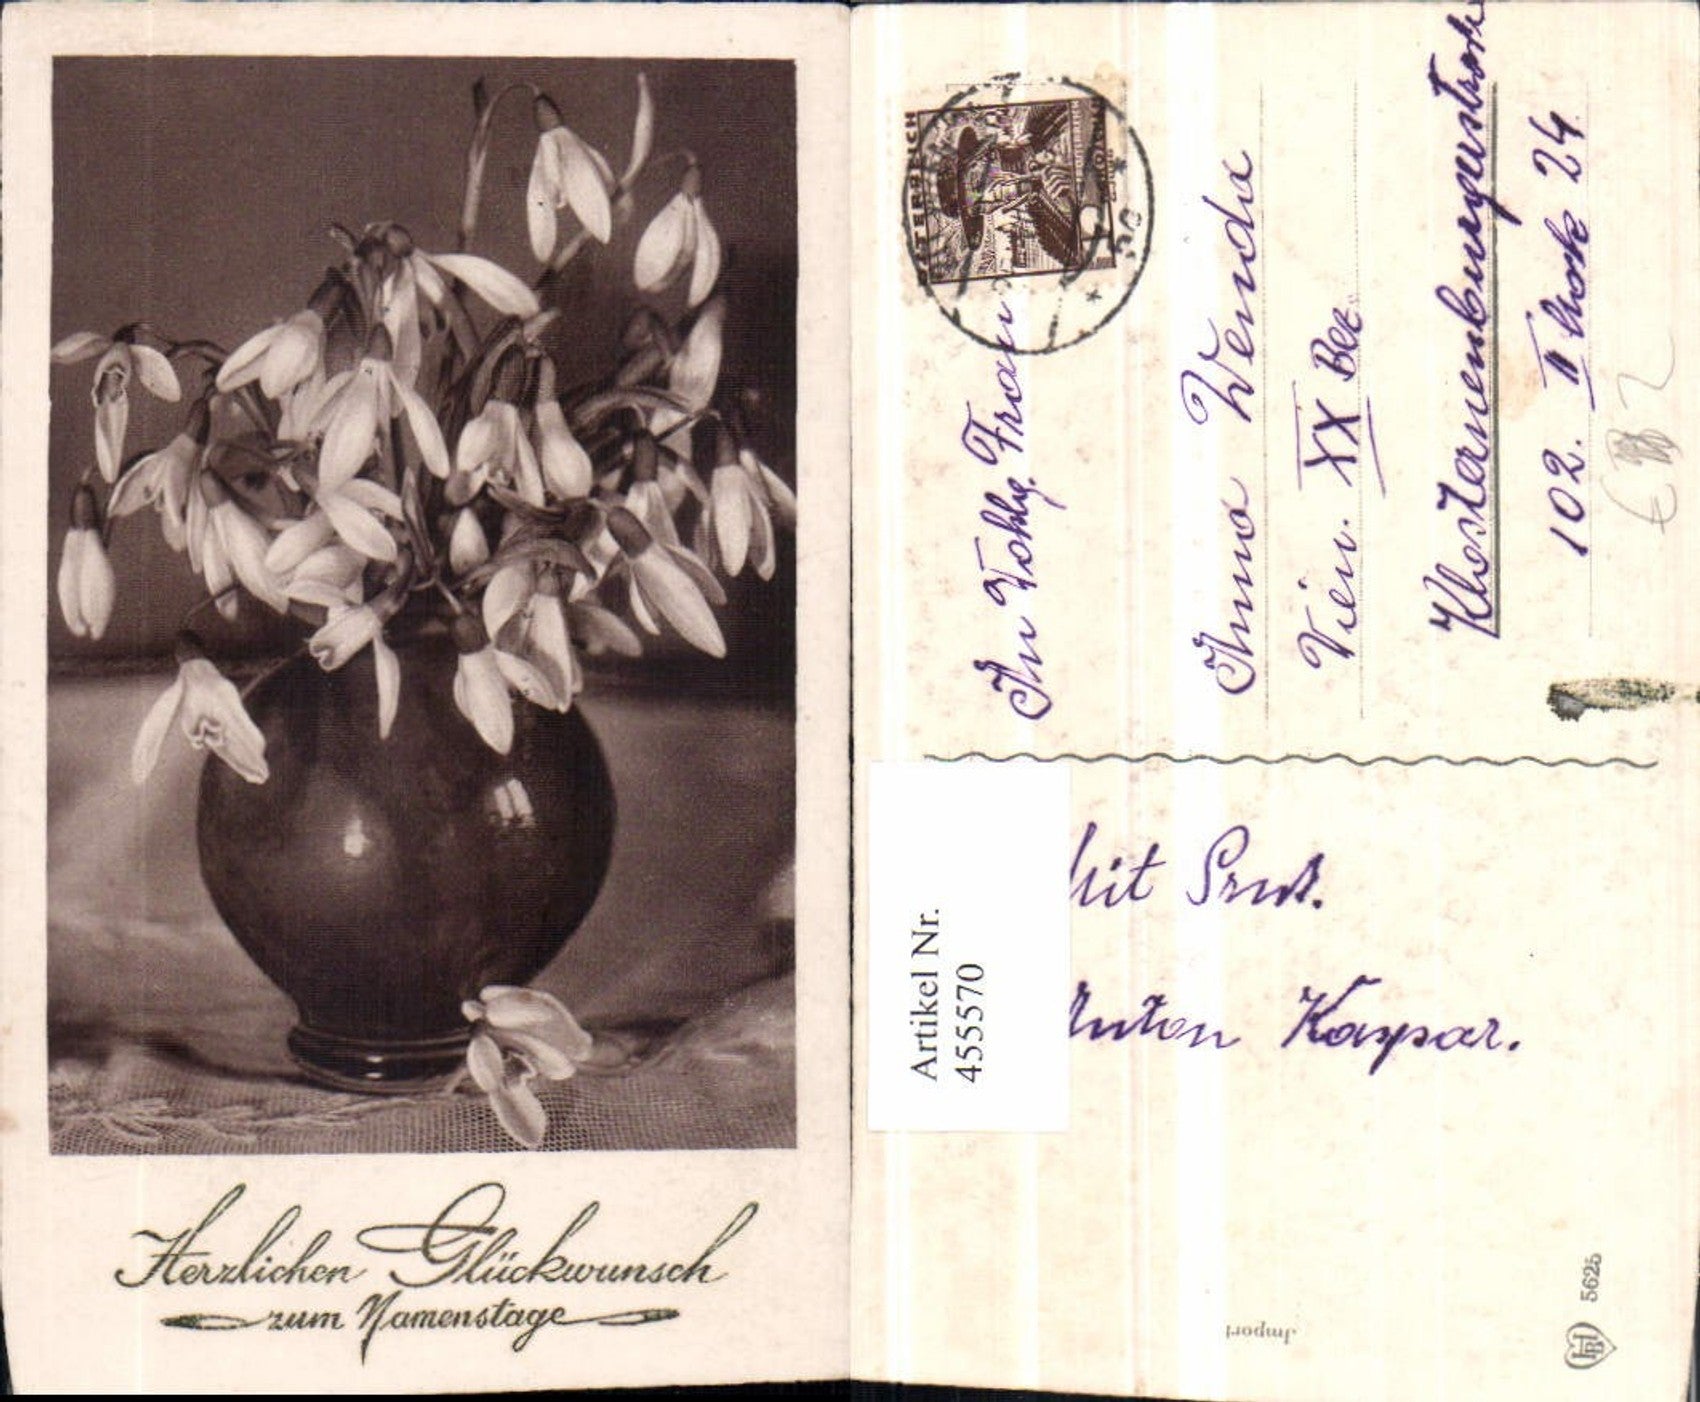 Herzlichen Glückwunsch
zum Namenstage
ÖSTERREICH
An Wohlg. Frau
Anna Wenda
Wien. XX Bez.
Klosterneuburgerstrasse
102. II Stock 24
Artikel Nr.
455570
Mit Prost.
Anton Kaspar.
Import
HB 5625